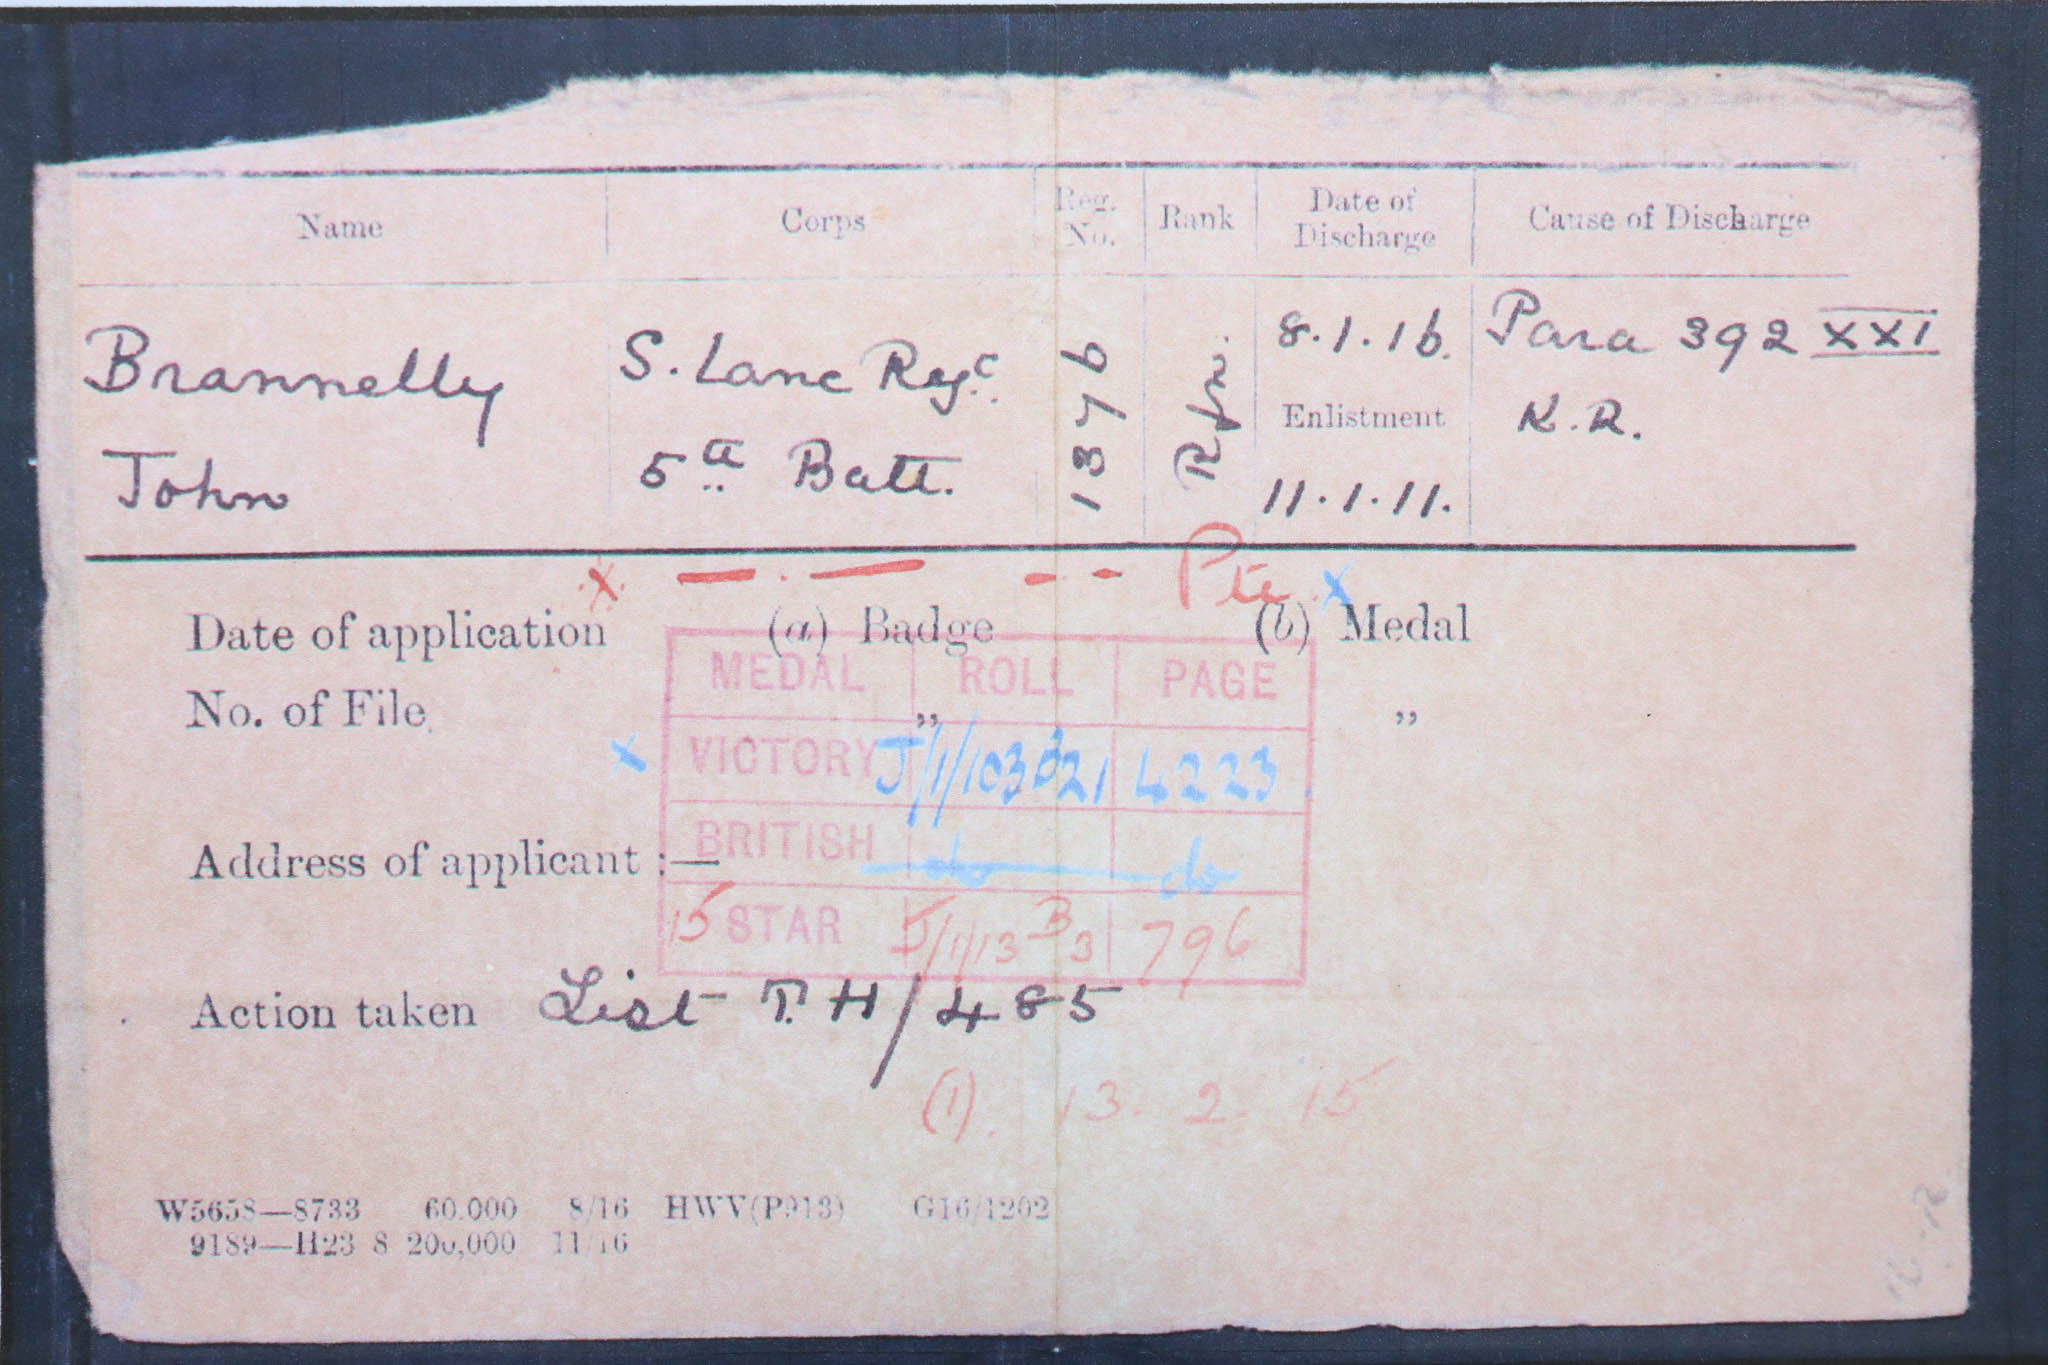 Name Corps Reg. No. Rank Date of Discharge Cause of Discharge
Brannelly S. Lanc Regt. 1376 Rfn. 8.1.16. Para 392 XXI
Enlistment K.R.
John 5th Batt. 11.1.11.
x — . — - - Pte x
Date of application (a) Badge (b) Medal
MEDAL ROLL PAGE
No. of File „ „
x VICTORY J/1/103 B21 4223
BRITISH do do
Address of applicant :—
15 STAR J/1/13 B3 796
Action taken List T.H/485
(1). 13. 2. 15
W5658—8733 60,000 8/16 HWV(P913) G16/1202
9189—H23 8 200,000 11/16